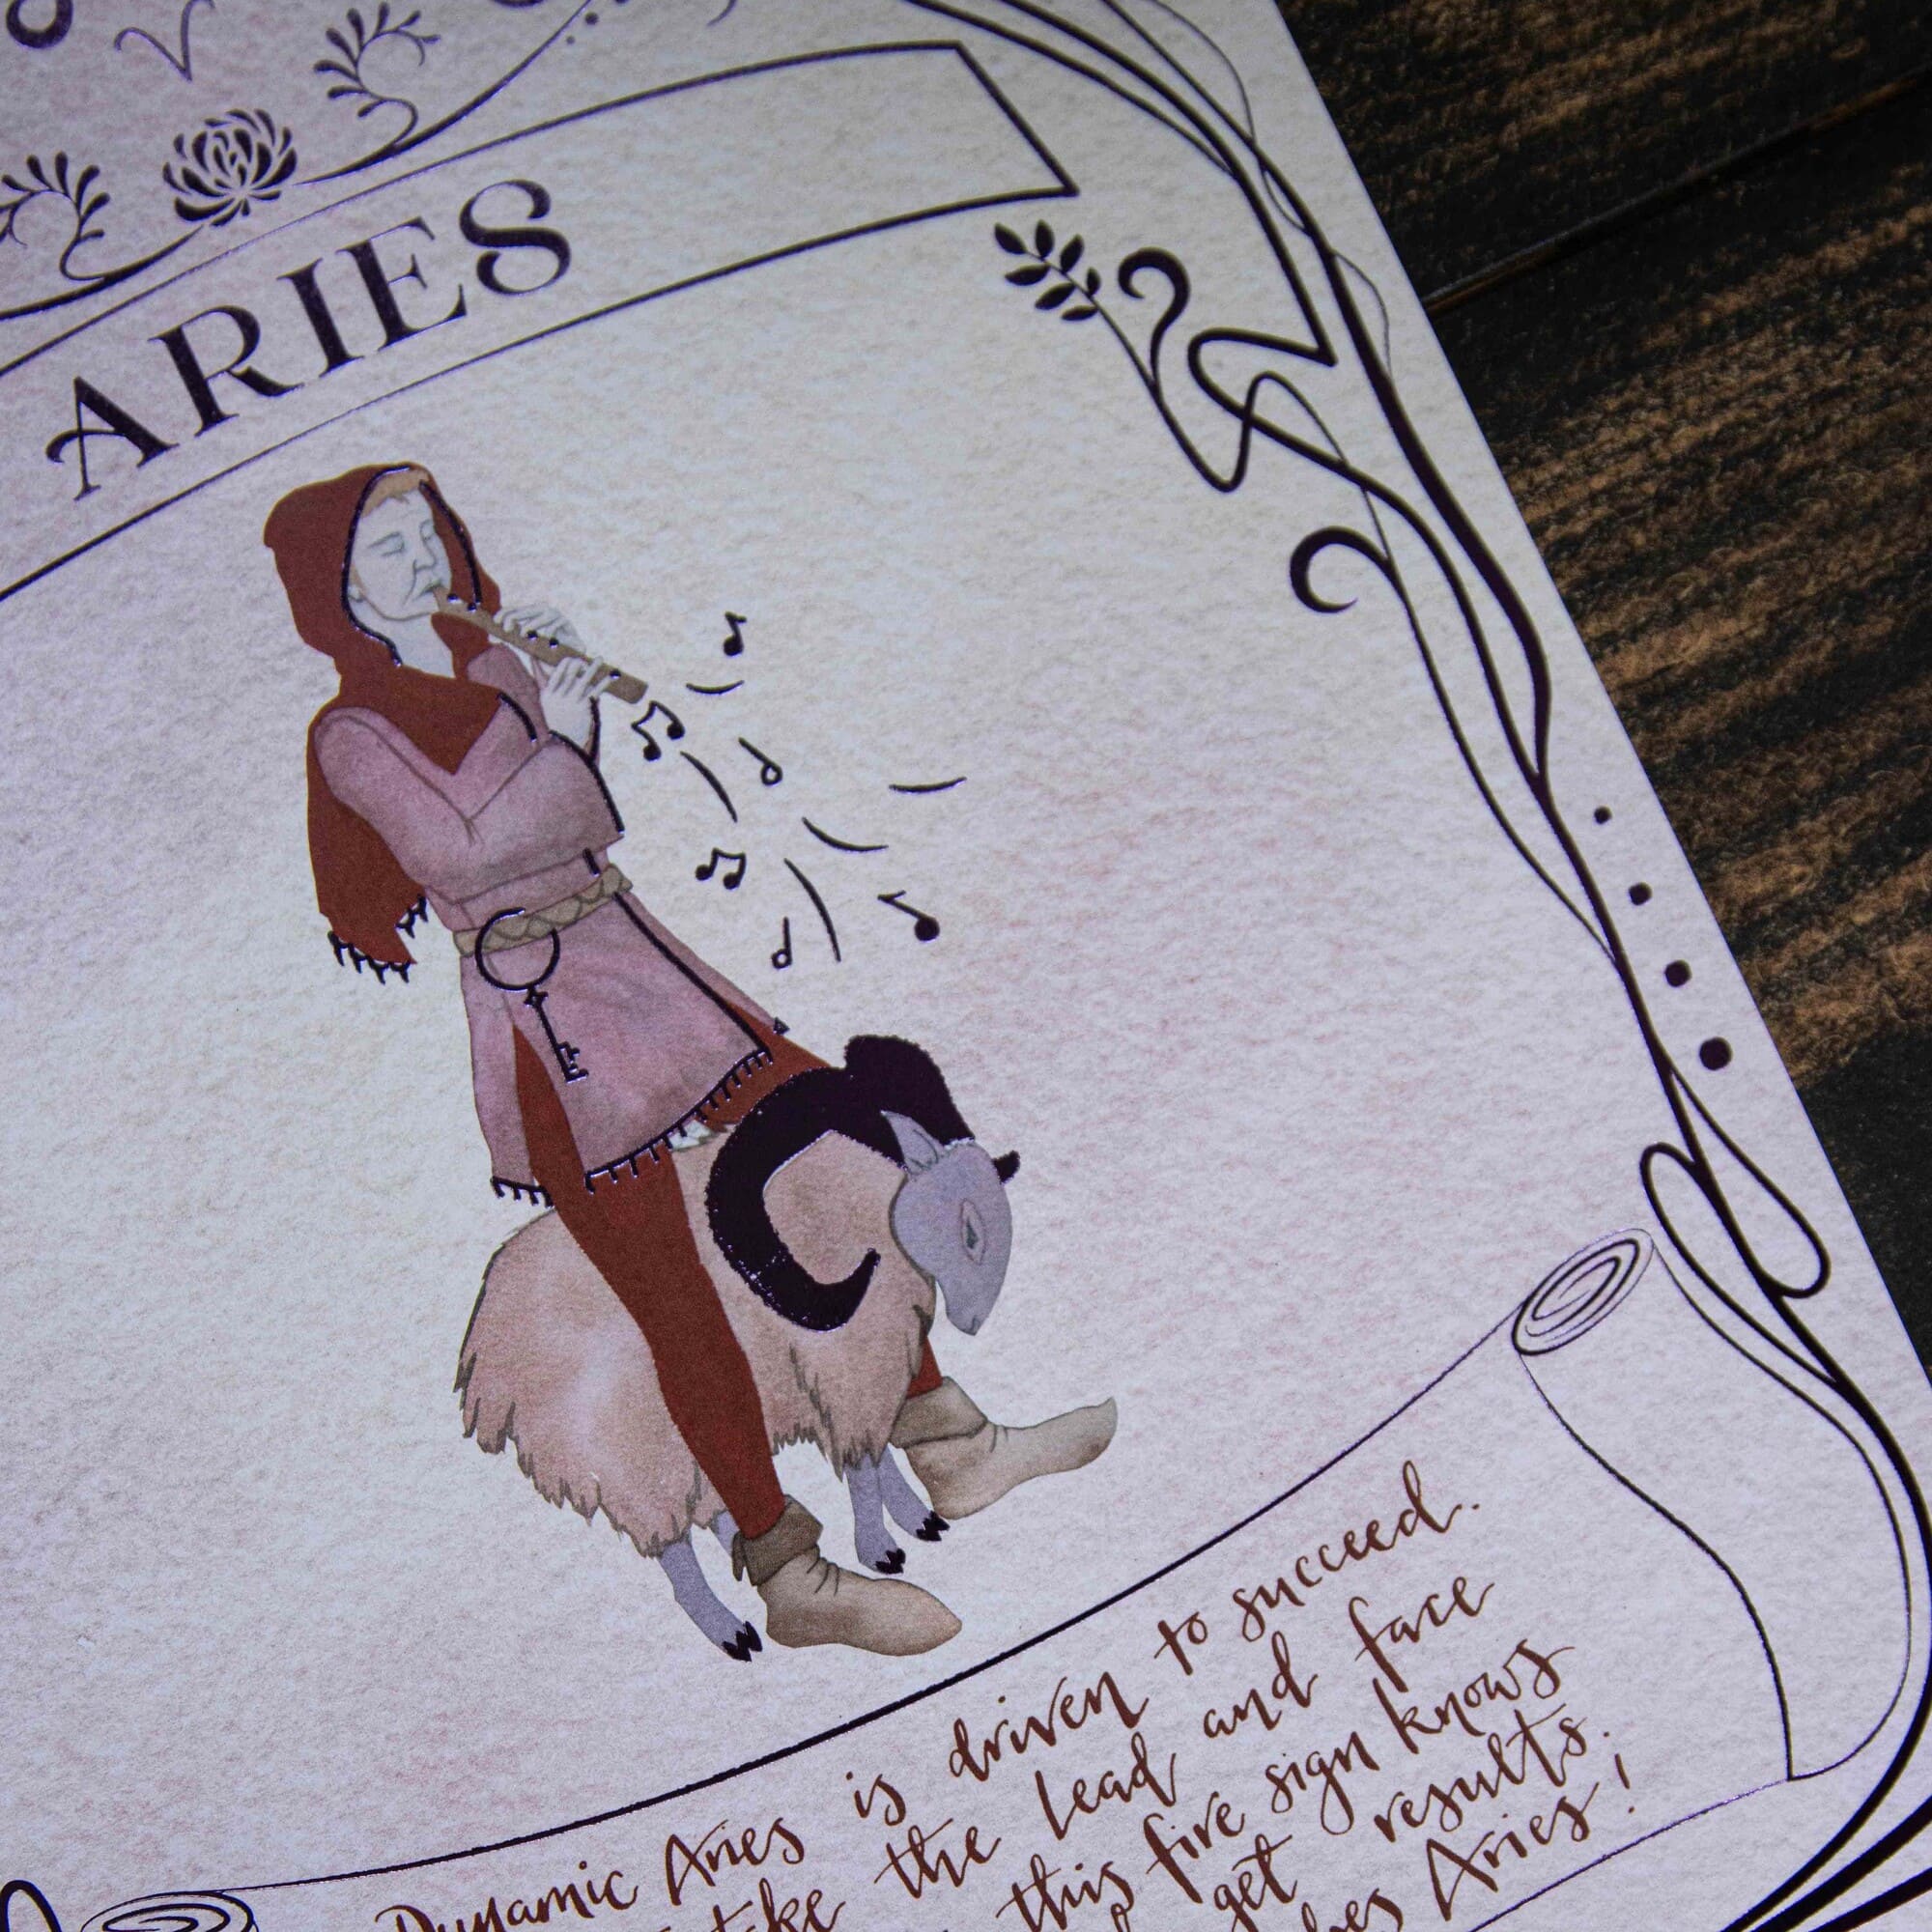 ARIES
Dynamic Aries is driven to succeed.
take the lead and face
this fire sign knows
get results.
Aries!